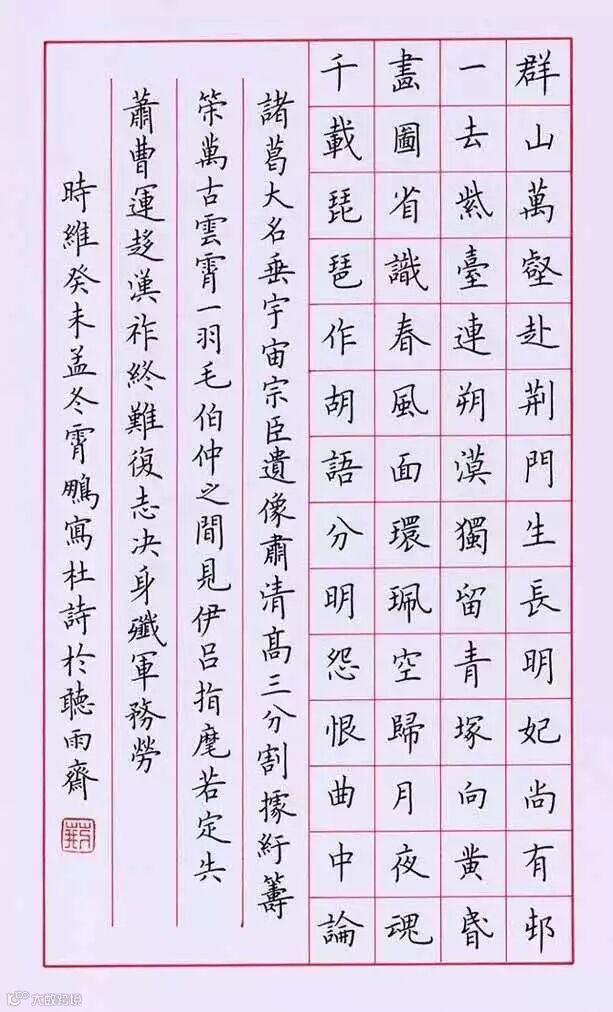 群山萬壑赴荆門生長明妃尚有邨
一去紫臺連朔漠獨留青塚向黄昬
畫圖省識春風面環珮空歸月夜魂
千載琵琶作胡語分明怨恨曲中論
諸葛大名垂宇宙宗臣遺像肅清髙三分割據紆籌
策萬古雲霄一羽毛伯仲之間見伊吕指麾若定失
蕭曹運趍漢祚終難復志决身殲軍務勞
時維癸未孟冬霄鵬寫杜詩於聽雨齋
大数跨境